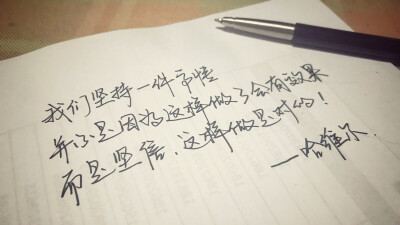 我们坚持一件事情
并不是因为这样做了会有效果
而是坚信,这样做是对的!
—哈维尔.